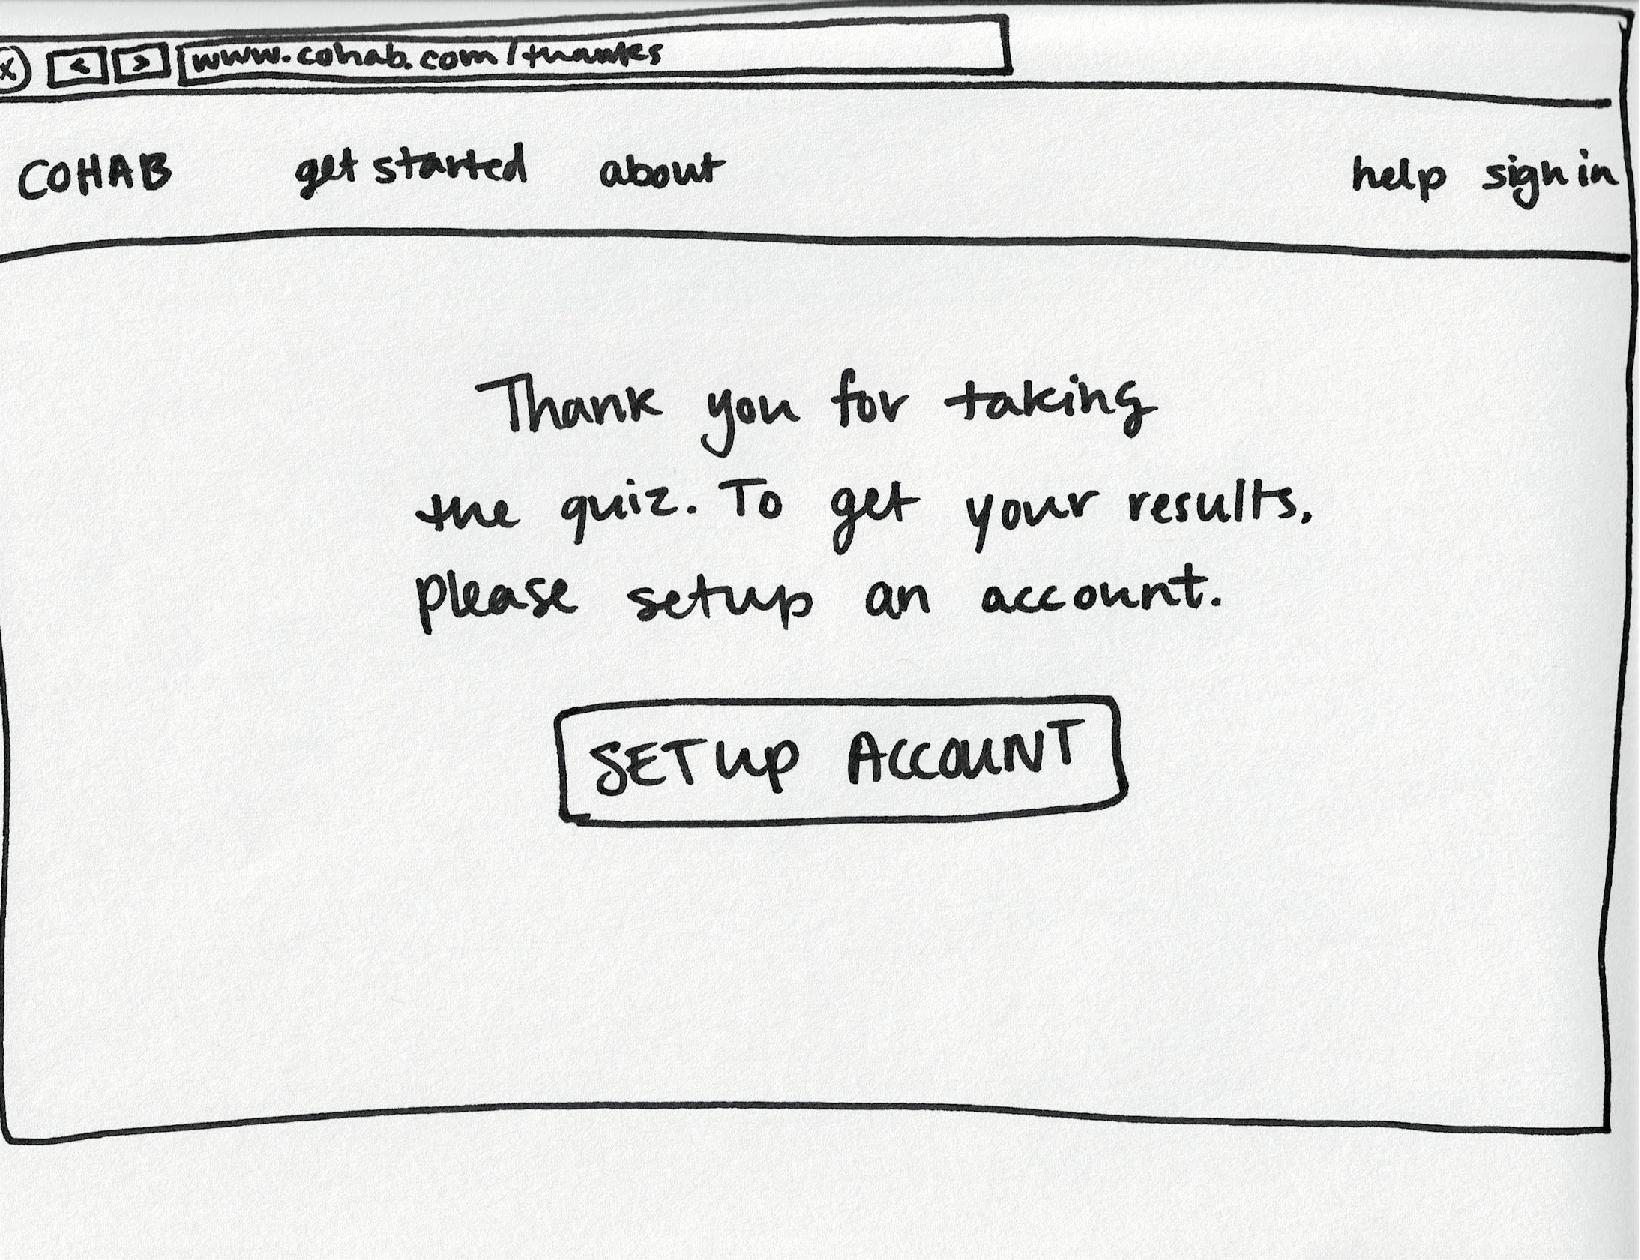 x < > www.cohab.com/thanks
COHAB get started about help sign in
Thank you for taking
the quiz. To get your results,
please setup an account.
SETUP ACCOUNT